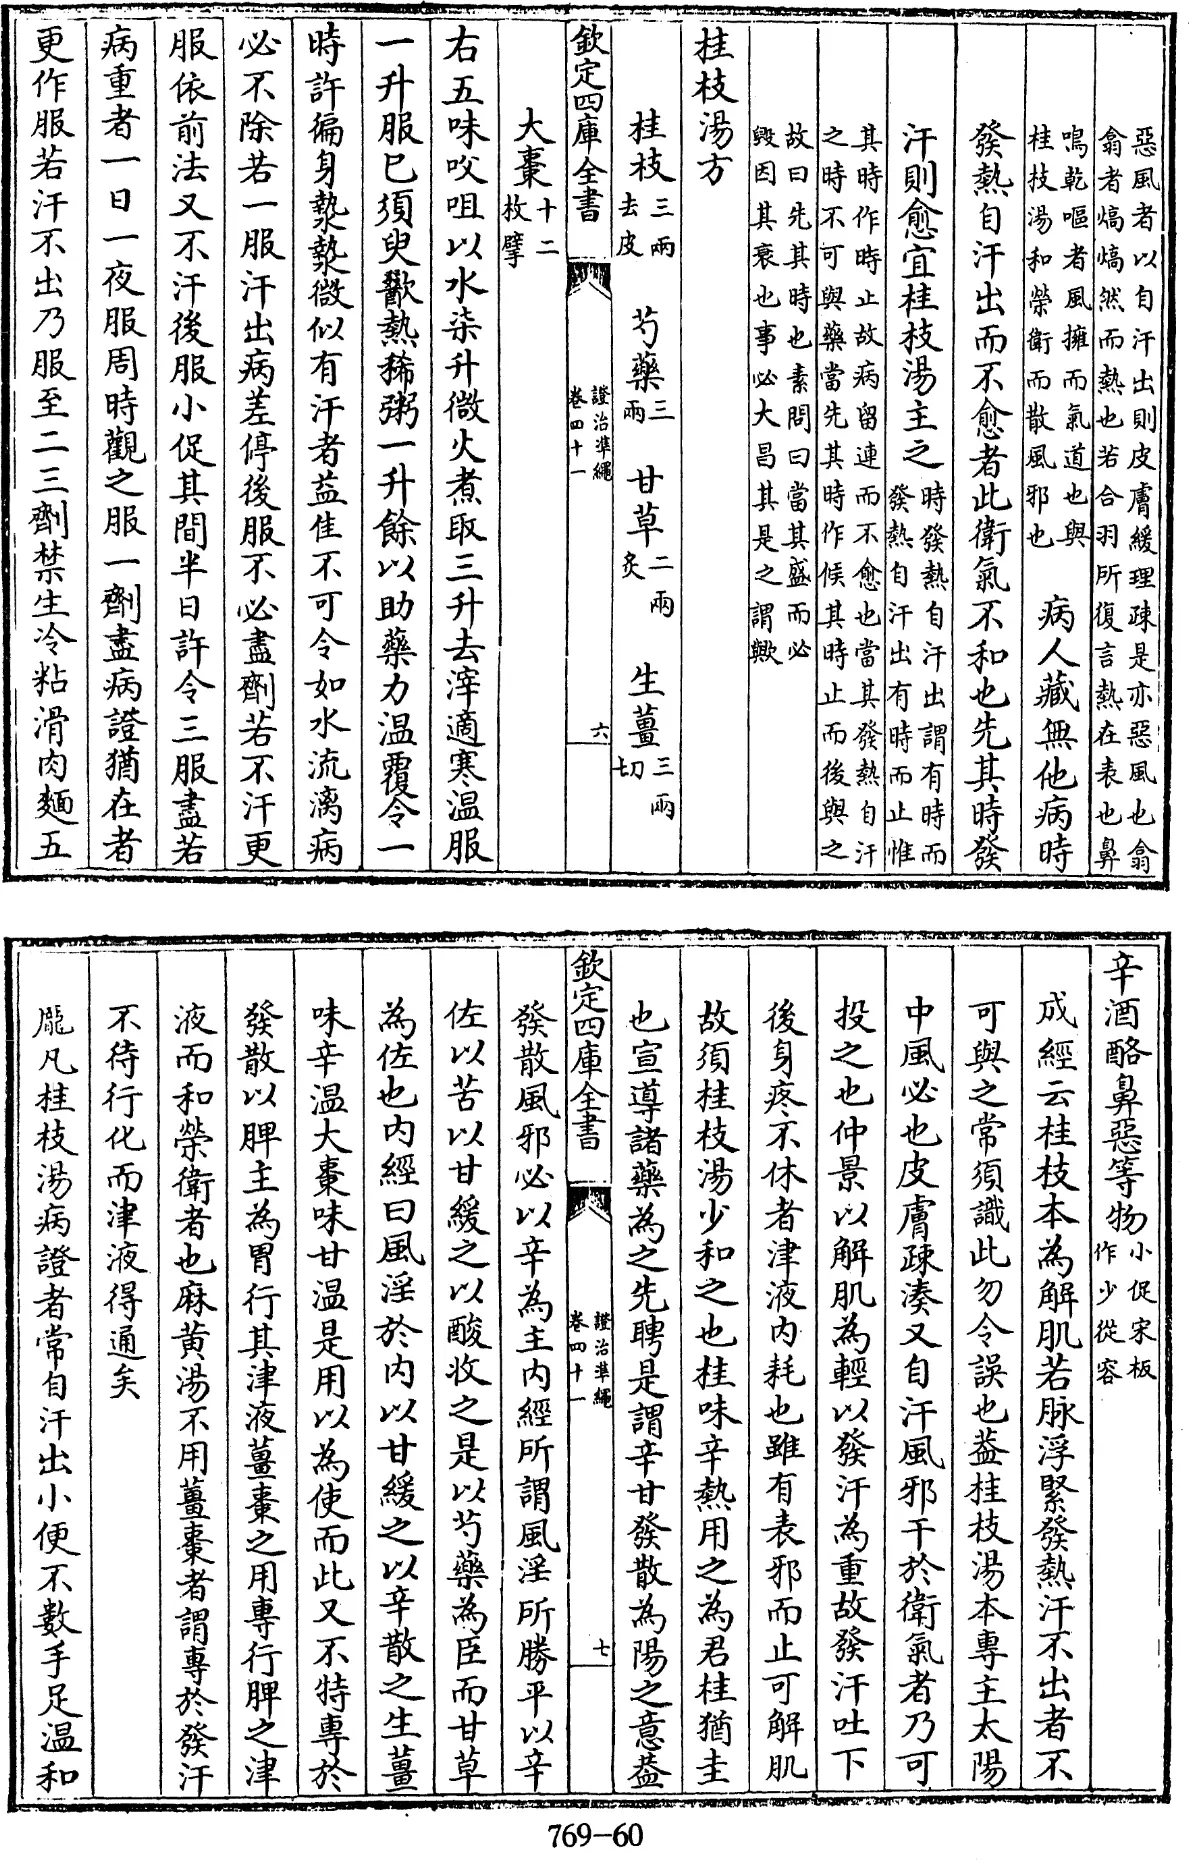 惡風者以自汗出則皮膚緩理疎是亦惡風也翕
翕者熇熇然而熱也若合羽所復言熱在表也鼻
鳴乾嘔者風擁而氣道也與
桂枝湯和榮衛而散風邪也
病人藏無他病時
發熱自汗出而不愈者此衛氣不和也先其時發
汗則愈宜桂枝湯主之
時發熱自汗出謂有時而
發熱自汗出有時而止惟
其時作時止故病留連而不愈也當其發熱自汗
之時不可與藥當先其時作候其時止而後與之
故曰先其時也素問曰當其盛而必
毀因其衰也事必大昌其是之謂歟
桂枝湯方
桂枝三兩去皮 芍藥三兩 甘草二兩炙 生薑三兩切
欽定四庫全書 證治準繩 卷四十一 六
大棗十二枚擘
右五味㕮咀以水柒升微火煮取三升去滓適寒温服
一升服已須臾歠熱稀粥一升餘以助藥力温覆令一
時許徧身漐漐微似有汗者益佳不可令如水流漓病
必不除若一服汗出病差停後服不必盡劑若不汗更
服依前法又不汗後服小促其間半日許令三服盡若
病重者一日一夜服周時觀之服一劑盡病證猶在者
更作服若汗不出乃服至二三劑禁生冷粘滑肉麵五
辛酒酪鼻惡等物小促宋板作少從容
成經云桂枝本為解肌若脉浮緊發熱汗不出者不
可與之常須識此勿令誤也葢桂枝湯本專主太陽
中風必也皮膚疎湊又自汗風邪干於衛氣者乃可
投之也仲景以解肌為輕以發汗為重故發汗吐下
後身疼不休者津液内耗也雖有表邪而止可解肌
故須桂枝湯少和之也桂味辛熱用之為君桂猶圭
也宣導諸藥為之先聘是謂辛甘發散為陽之意葢
欽定四庫全書 證治準繩 卷四十一 七
發散風邪必以辛為主内經所謂風淫所勝平以辛
佐以苦以甘緩之以酸收之是以芍藥為臣而甘草
為佐也内經曰風淫於内以甘緩之以辛散之生薑
味辛温大棗味甘温是用以為使而此又不特專於
發散以脾主為胃行其津液薑棗之用專行脾之津
液而和榮衛者也麻黄湯不用薑棗者謂專於發汗
不待行化而津液得通矣
龎凡桂枝湯病證者常自汗出小便不數手足温和
769-60